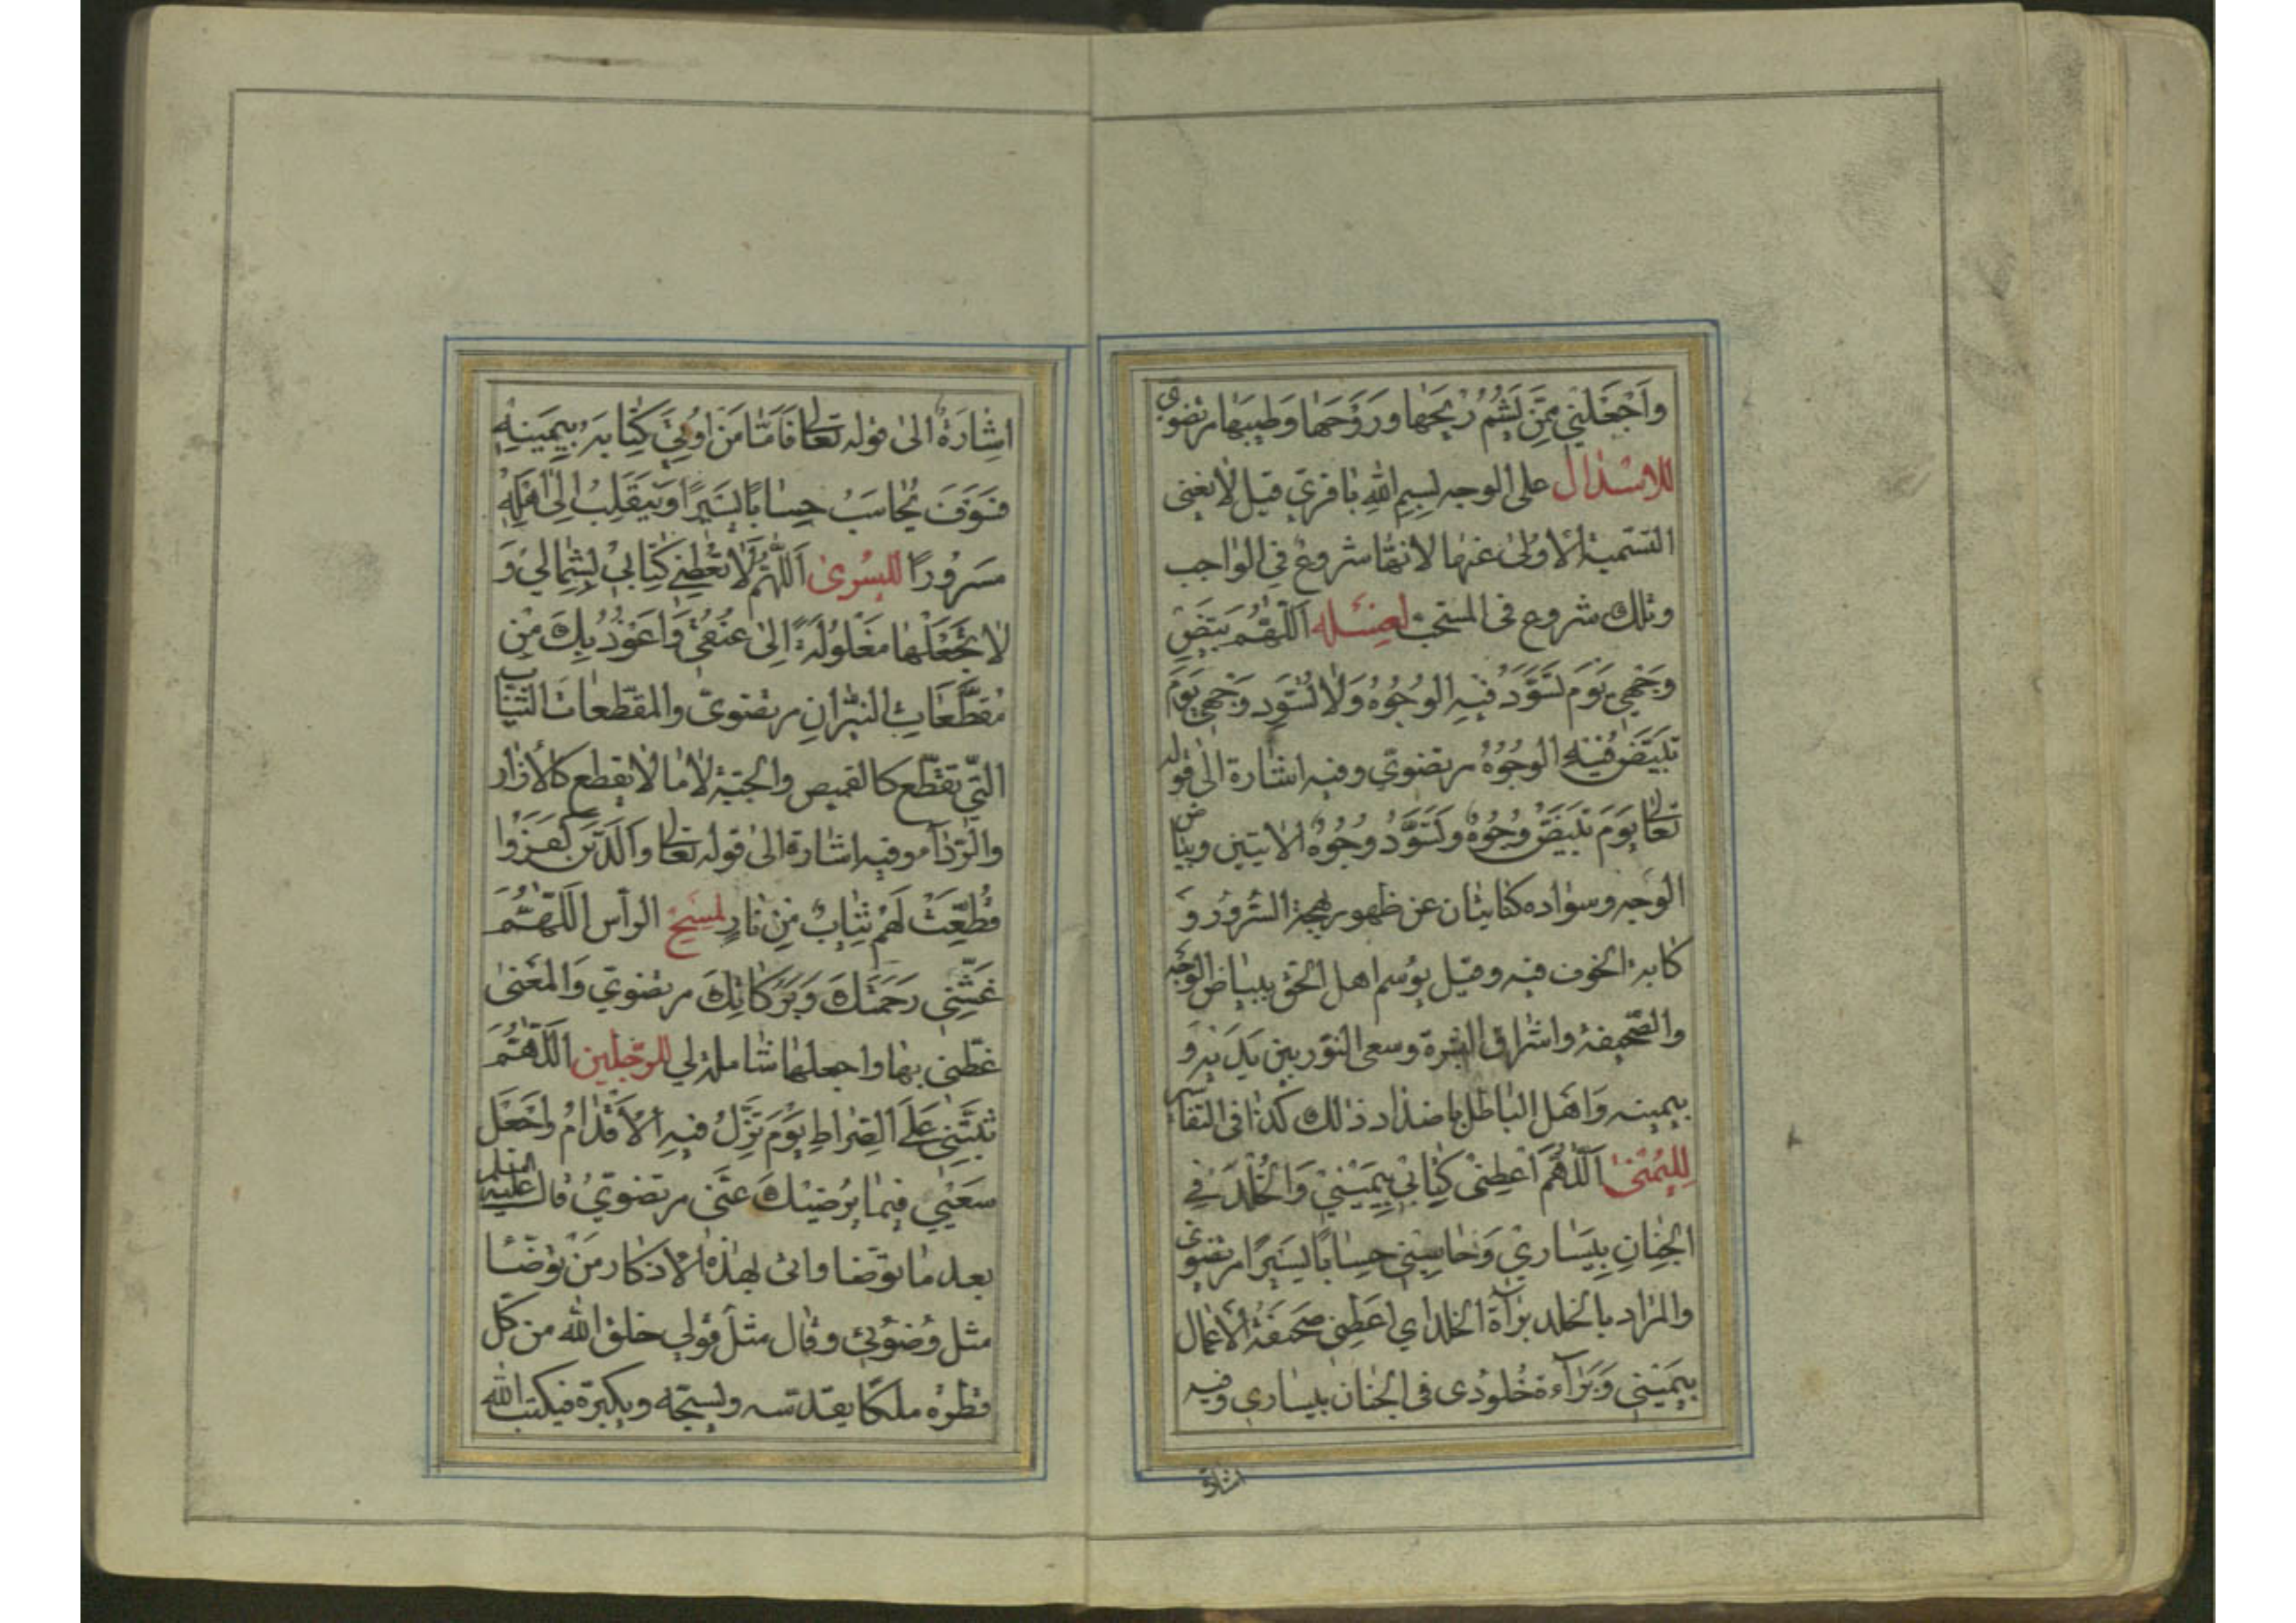 وَاجْعَلْنِي مِمَّنْ يَشُمُّ رِيْحَهٰا وَرَوْحَهٰا وَطِيبَهٰا مرتضوى
للاسْدال على الوجه بِسمِ اللّٰهِ باقرىّ قيل لا يغنى
التّسمية الاولىٰ عنها لانّها شروع فى الواجب
وتلك شروع فى المستحبّ لغسله اَللّٰهُمَّ بَيِّضْ
وَجْهِي يَوْمَ تَسْوَدُّ فيهِ الوُجُوهُ وَلا تُسَوِّد وَجْهِي يَوْمَ
تَبْيَضُّ فِيْهِ الوُجُوْهُ مرتضوىّ وفيه اشارة الىٰ قوله
تعالىٰ يَوْمَ تَبْيَضُّ وُجُوهٌ وتَسْوَدُّ وُجُوهٌ الايتين وبياض
الوجه وسواده كنايتان عن ظهور بهجة السّرور و
كابة الخوف فيه وقيل يوسم اهل الحقّ ببياض الوجه
والصّحيفة واشراق البشرة وسعى النّور بين يديه و
بيمينه وَاهل الباطل باضداد ذٰلك كذا فى التفاسير
لِليُمْنىٰ اَللّٰهُمَّ اَعْطِنىْ كِتٰابِي بِيَمِيْنيْ وَالخُلْدَ فِي
الجِنٰانِ بِيَسٰاريْ وَحٰاسِبْنِي حِسٰابًا يَسِيْرًا مرتضوىّ
والمرٰاد بالخلد برٰآة الخلد اي اعطِنى صحيفة الأعمال
بيَمِينِي وَبَرآءة خُلوُدى فى الجنان بيسارى وفيه
اشارة
اشٰارَة الىٰ قوله تعالىٰ فَاَمّٰا مَنْ اُوتِيَ كِتٰابَهُ بِيَمِينِهِ
فَسَوْفَ يُحٰاسَبُ حِسٰابًا يَسِيرًا وَيَنْقَلِبُ اِلىٰ اَهْلِهِ
مَسْرُورًا لليُسْرىٰ اَللّٰهُمَّ لٰا تُعْطِنِي كِتٰابِي بِشِمٰالي وَ
لٰا تَجْعَلْهٰا مَغْلُولَةً اِلىٰ عُنُقِي وَاَعُوْذُ بِكَ مِنْ
مُقَطَّعَاتِ النّيْرٰانِ مرتضوىّ والمقطّعات الثّياب
التّي تقطّع كالقميص والجبّة لٰا ما لا يقطع كالأزار
والرّدآء وفيه اشٰارة الىٰ قوله تعالىٰ وَالَّذينَ كَفَرُوا
قُطِّعَتْ لَهُمْ ثِيٰابٌ مِنْ نارٍ لمسح الرأس اَللّٰهُمَّ
غَشِّنِي رَحمَتَكَ وَبَرَكٰاتِكَ مرتضويّ وَالمعنىٰ
غطّنى بهٰا واجعلهٰا شٰاملة لي للرّجلين اَللّٰهُمَّ
ثَبِّتْنِي عَلَى الصِّرَاطِ يَوْمَ تَزِلُّ فيهِ الْأَقْدٰامُ وَاجْعَلْ
سَعْيِي فِيمٰا يُرْضِيْكَ عَنّى مرتضويّ قال عليه السلم
بعد مٰا توضّا واتىٰ بهٰذه الأذكار مَنْ توضّأ
مثل وُضوُئي وقال مثل قولي خلق اللّٰه من كلّ
قطرة ملكًا يقدّسه ويسبّحه ويكبّره فيكتب اللّٰه